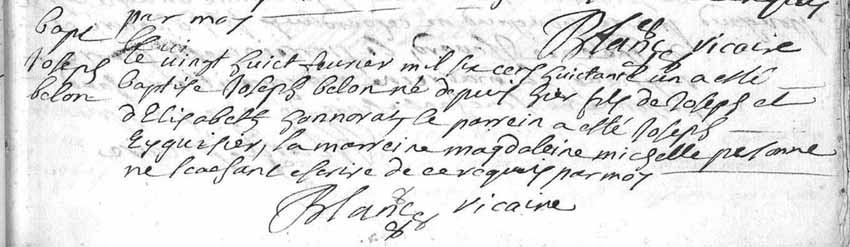 par moy
Blanc vicaire
bapt
Joseph
belon
Le vingt huict feurier mil six cens huictante un a esté
baptisé Joseph belon né depuis hier fils de Joseph et
d'Elisabeth honnorat, le parrein a esté Joseph
Eyguisier, la marreine magdaleine michelle personne
ne scachant escrire de ce requis par moy
Blanc vicaire